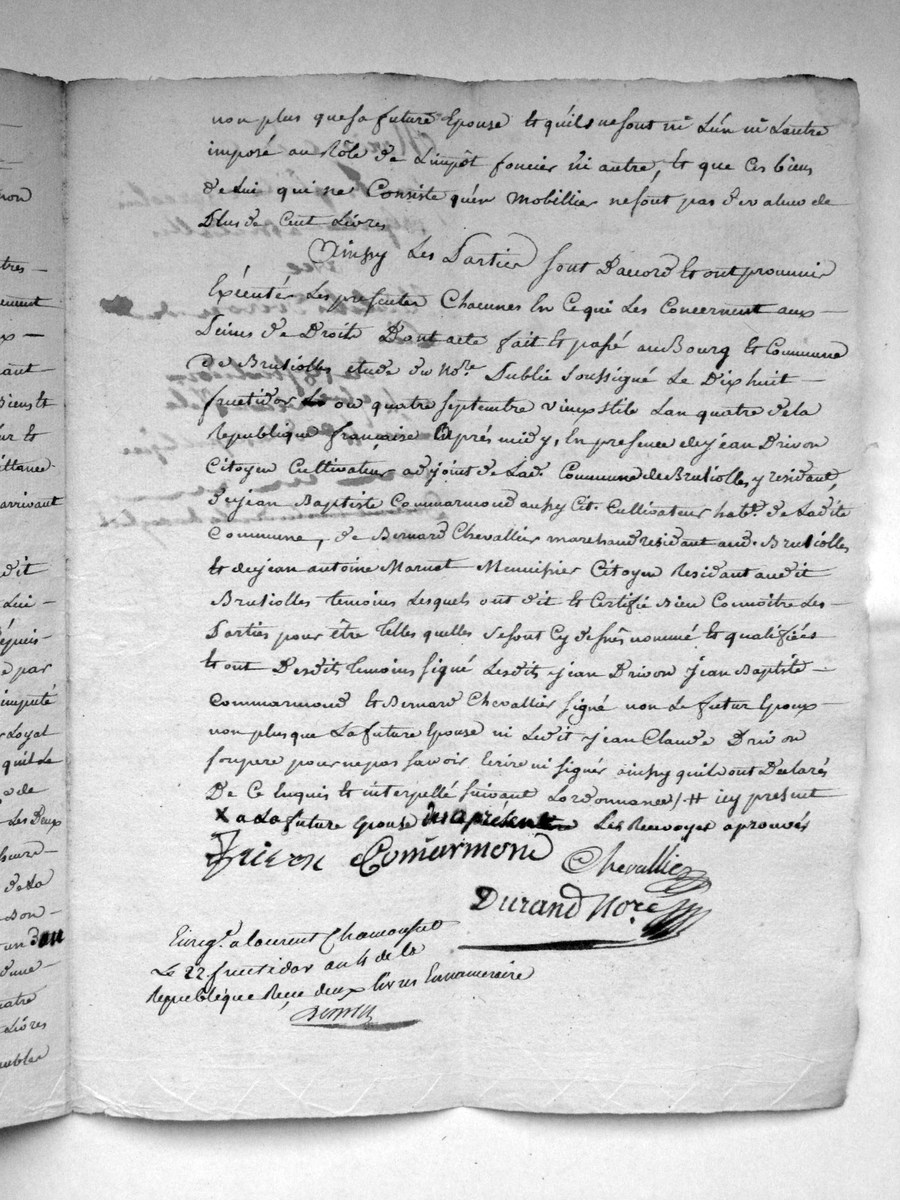 non plus que sa future Epouse Et quils ne sont ni Lun ni Lautre
imposé au Rôle de Limpôt foncier ni autre, Et que Ces biens
de Lui qui ne Consiste quen Mobillier ne sont pas de valeur de
Plus de Cent Livres
Ainsy Les Partier sont Daccord Et ont promir
Exécuté Les présenter Chacunes En Ce qui Les Concernent aux
Peines de Droits Dont acte fait Et passé au Bourg Et Commune
de Brusiolles étude du Nore. Publie Soussigné Le Dix huit
fructidor ou quatre septembre vieux stile Lan quatre de la
Republique française Après midy, En presence de jean Drivon
Citoyen Cultivateur adjoint de Lade. Commune de Brusiolles y residant,
de jean Baptiste Commarmond aussy Cit. Cultivateur habt. de Ladite
Commune, de Bernard Chevallier marchand residant aud. Brusiolles
Et de jean antoine Marnet Menuisier Citoyen Residant audit
Brusiolles temoins Lesquels ont dit Et Certifié Bien Connoitre Les
Parties pour être telles quelles se sont Cy dessus nommé Et qualifiées
Et ont Desdits temoins signé Lesdit jean Drivon jean Baptiste
Commarmond Et Bernard Chevallier signé non Le futur Epoux
non plus que La future Epouse ni Ledit jean Claude Drivon
son pere pour ne pas savoir Ecrire ni signer ainsy quil ont Declarés
De Ce Enquis Et interpellé suivant Lordonnance /# icy present
X a La future Epouse Les Renvoyer aprouvés
Drivon Comarmond
Chevallier
Durand Nore
Enregt. a Laurent Chamousset
Le 22 fructidor an 4 de la
Republique Reçu deux Livres En numeraire